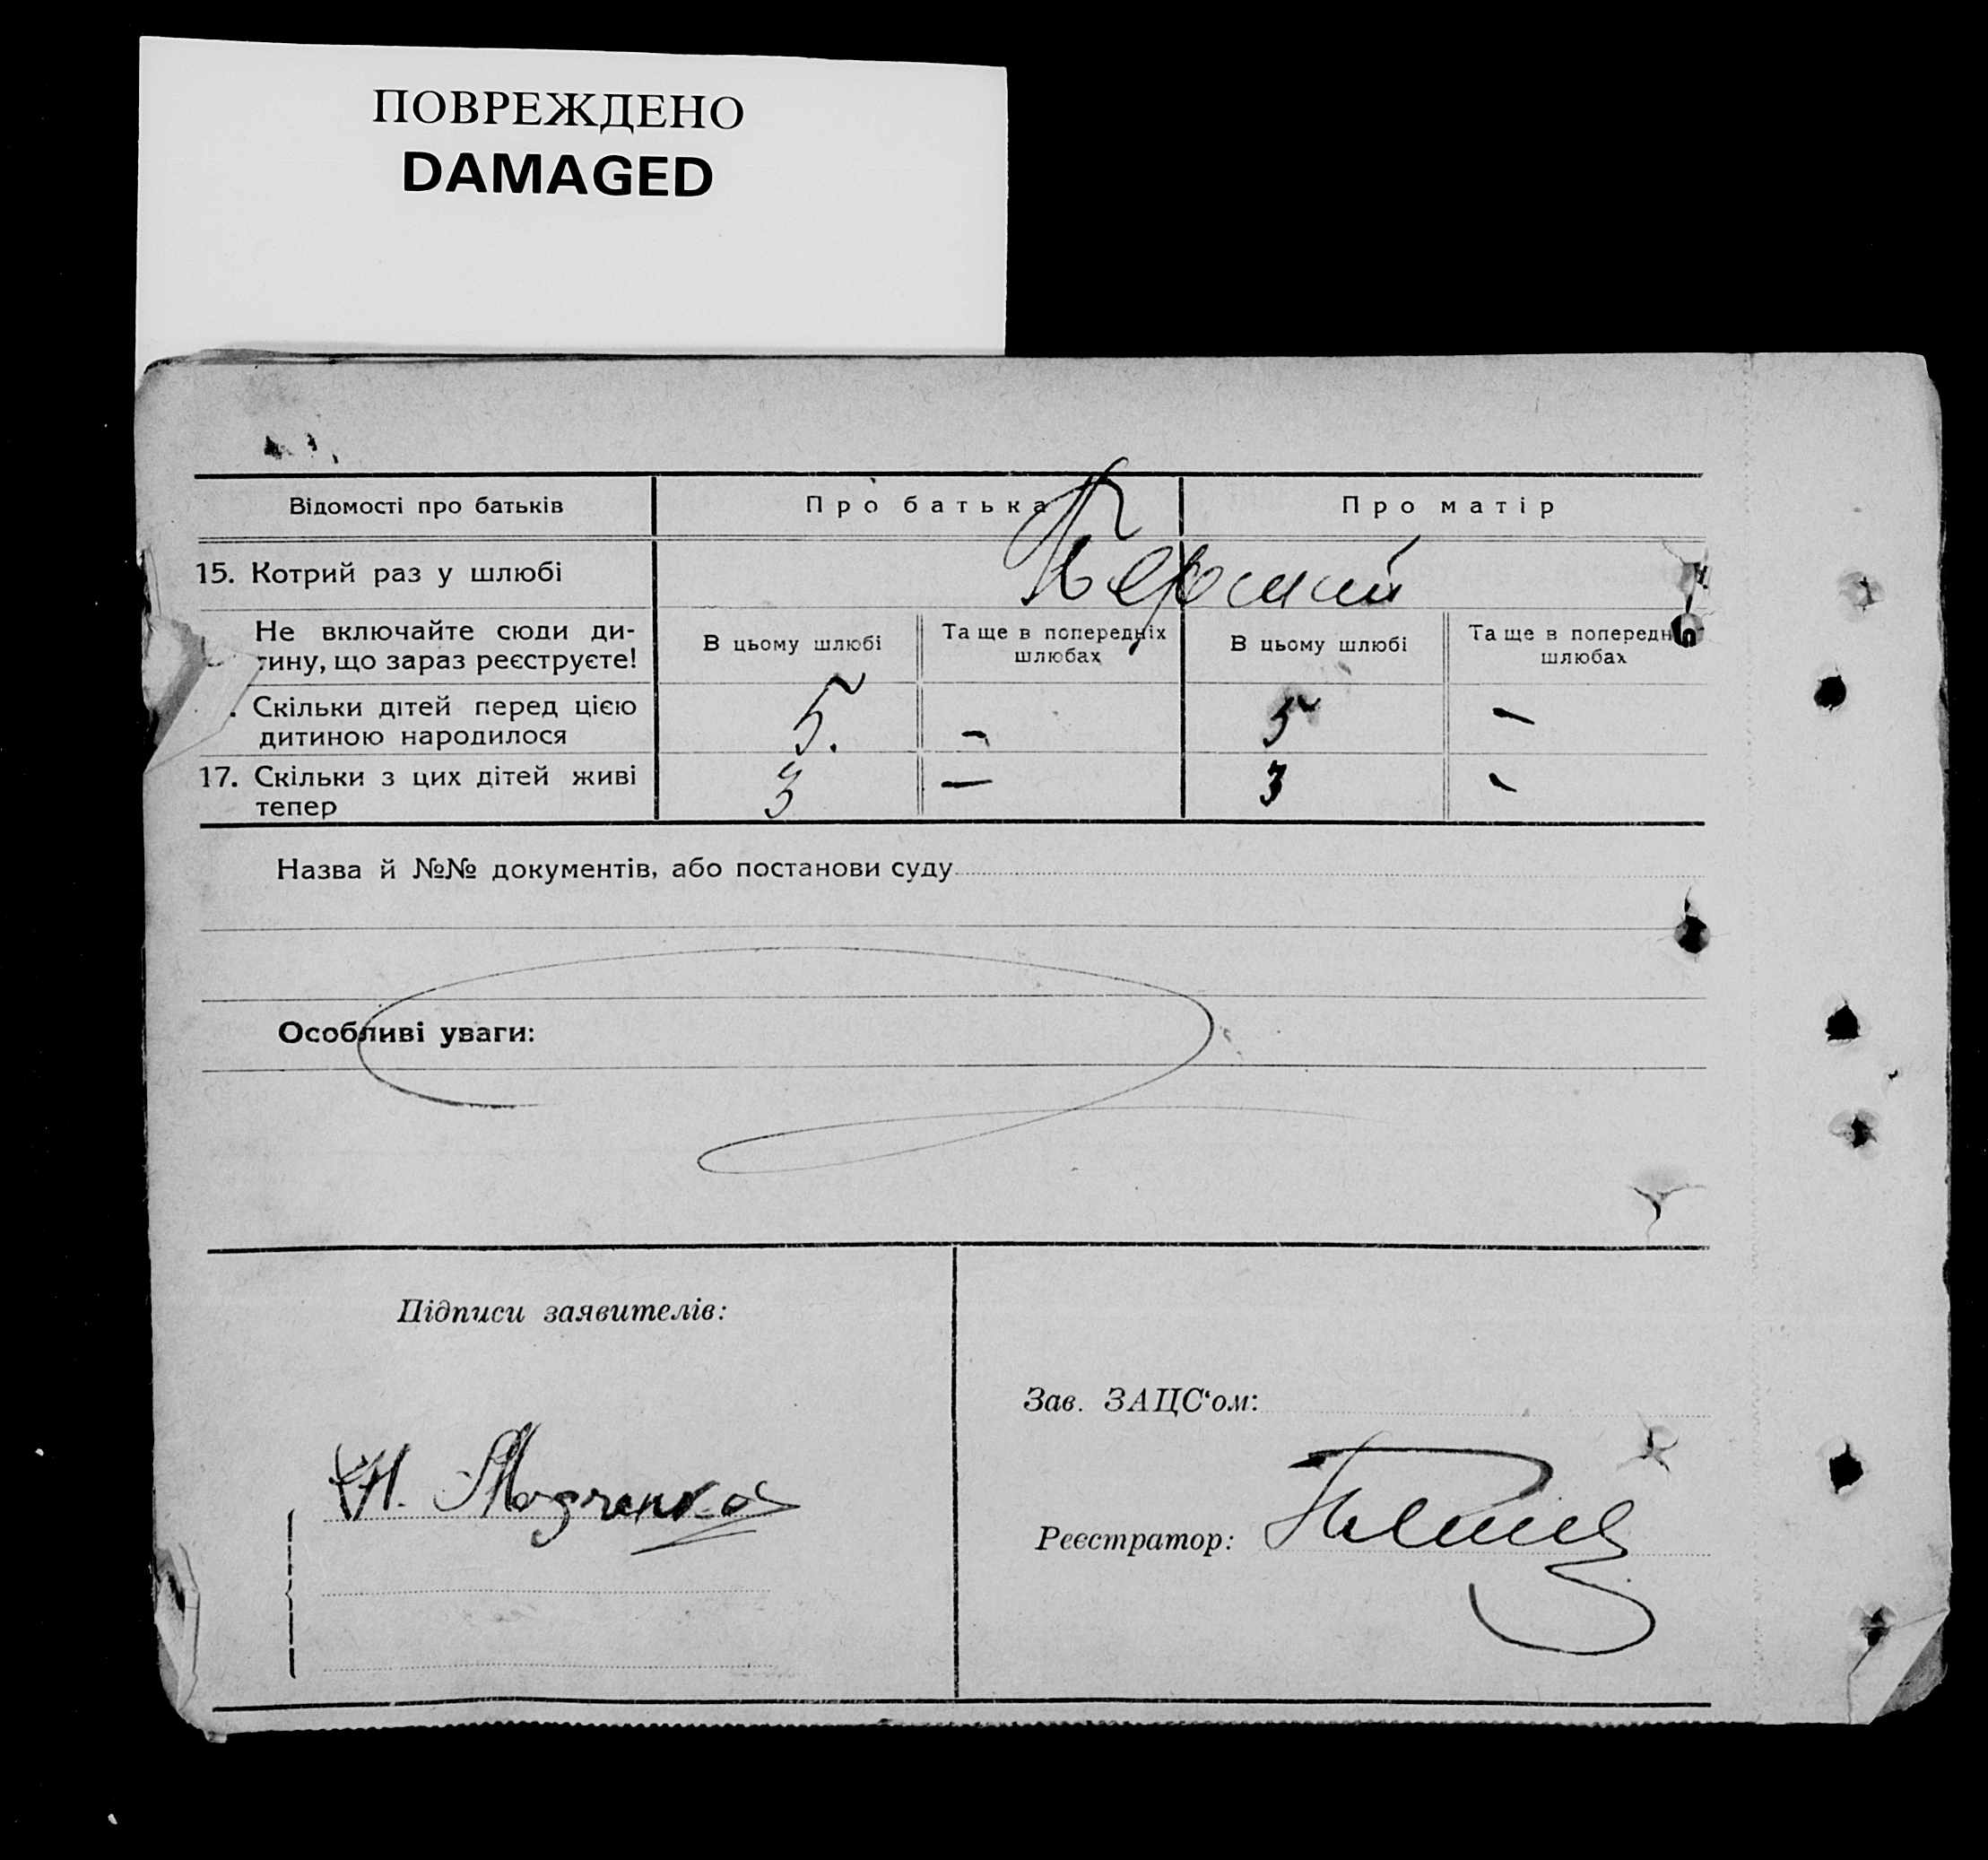 ПОВРЕЖДЕНО
DAMAGED
Відомості про батьків
Про батька
Про матір
15. Котрий раз у шлюбі
Перший
Не включайте сюди ди-
тину, що зараз реєструєте!
В цьому шлюбі
Та ще в попередніх
шлюбах
В цьому шлюбі
Та ще в попередн
шлюбах
. Скільки дітей перед цією
дитиною народилося
5.
-
5
-
17. Скільки з цих дітей живі
тепер
3
-
3
-
Назва й №№ документів, або постанови суду
Особливі уваги:
Підписи заявителів:
Зав. ЗАЦС‘ом:
Реєстратор: